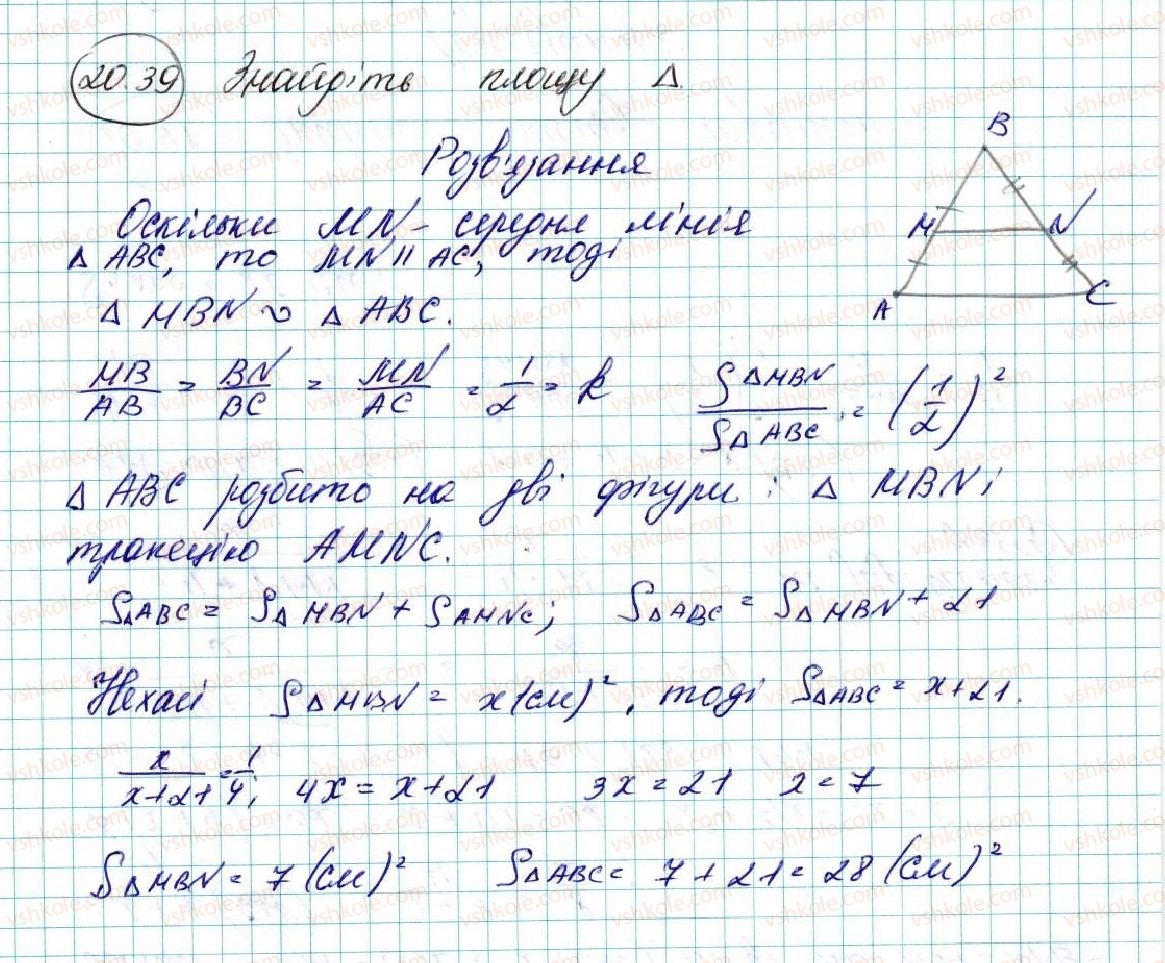 20.39 Знайдіть площу Δ.
Розв'язання
B
Оскільки MN - середня лінія
M N
Δ ABC, то MN || AC, тоді
A C
Δ MBN ∽ Δ ABC.
MB/AB = BN/BC = MN/AC = 1/2 = k SΔMBN/SΔABC = (1/2)²
Δ ABC розбито на дві фігури: Δ MBN і
трапецію AMNC.
SΔABC = SΔMBN + SAMNC; SΔABC = SΔMBN + 21
Нехай SΔMBN = x (см)², тоді SΔABC = x+21.
x/(x+21) = 1/4; 4x = x+21 3x = 21 x = 7
SΔMBN = 7 (см)² SΔABC = 7 + 21 = 28 (см)²
vshkole.com